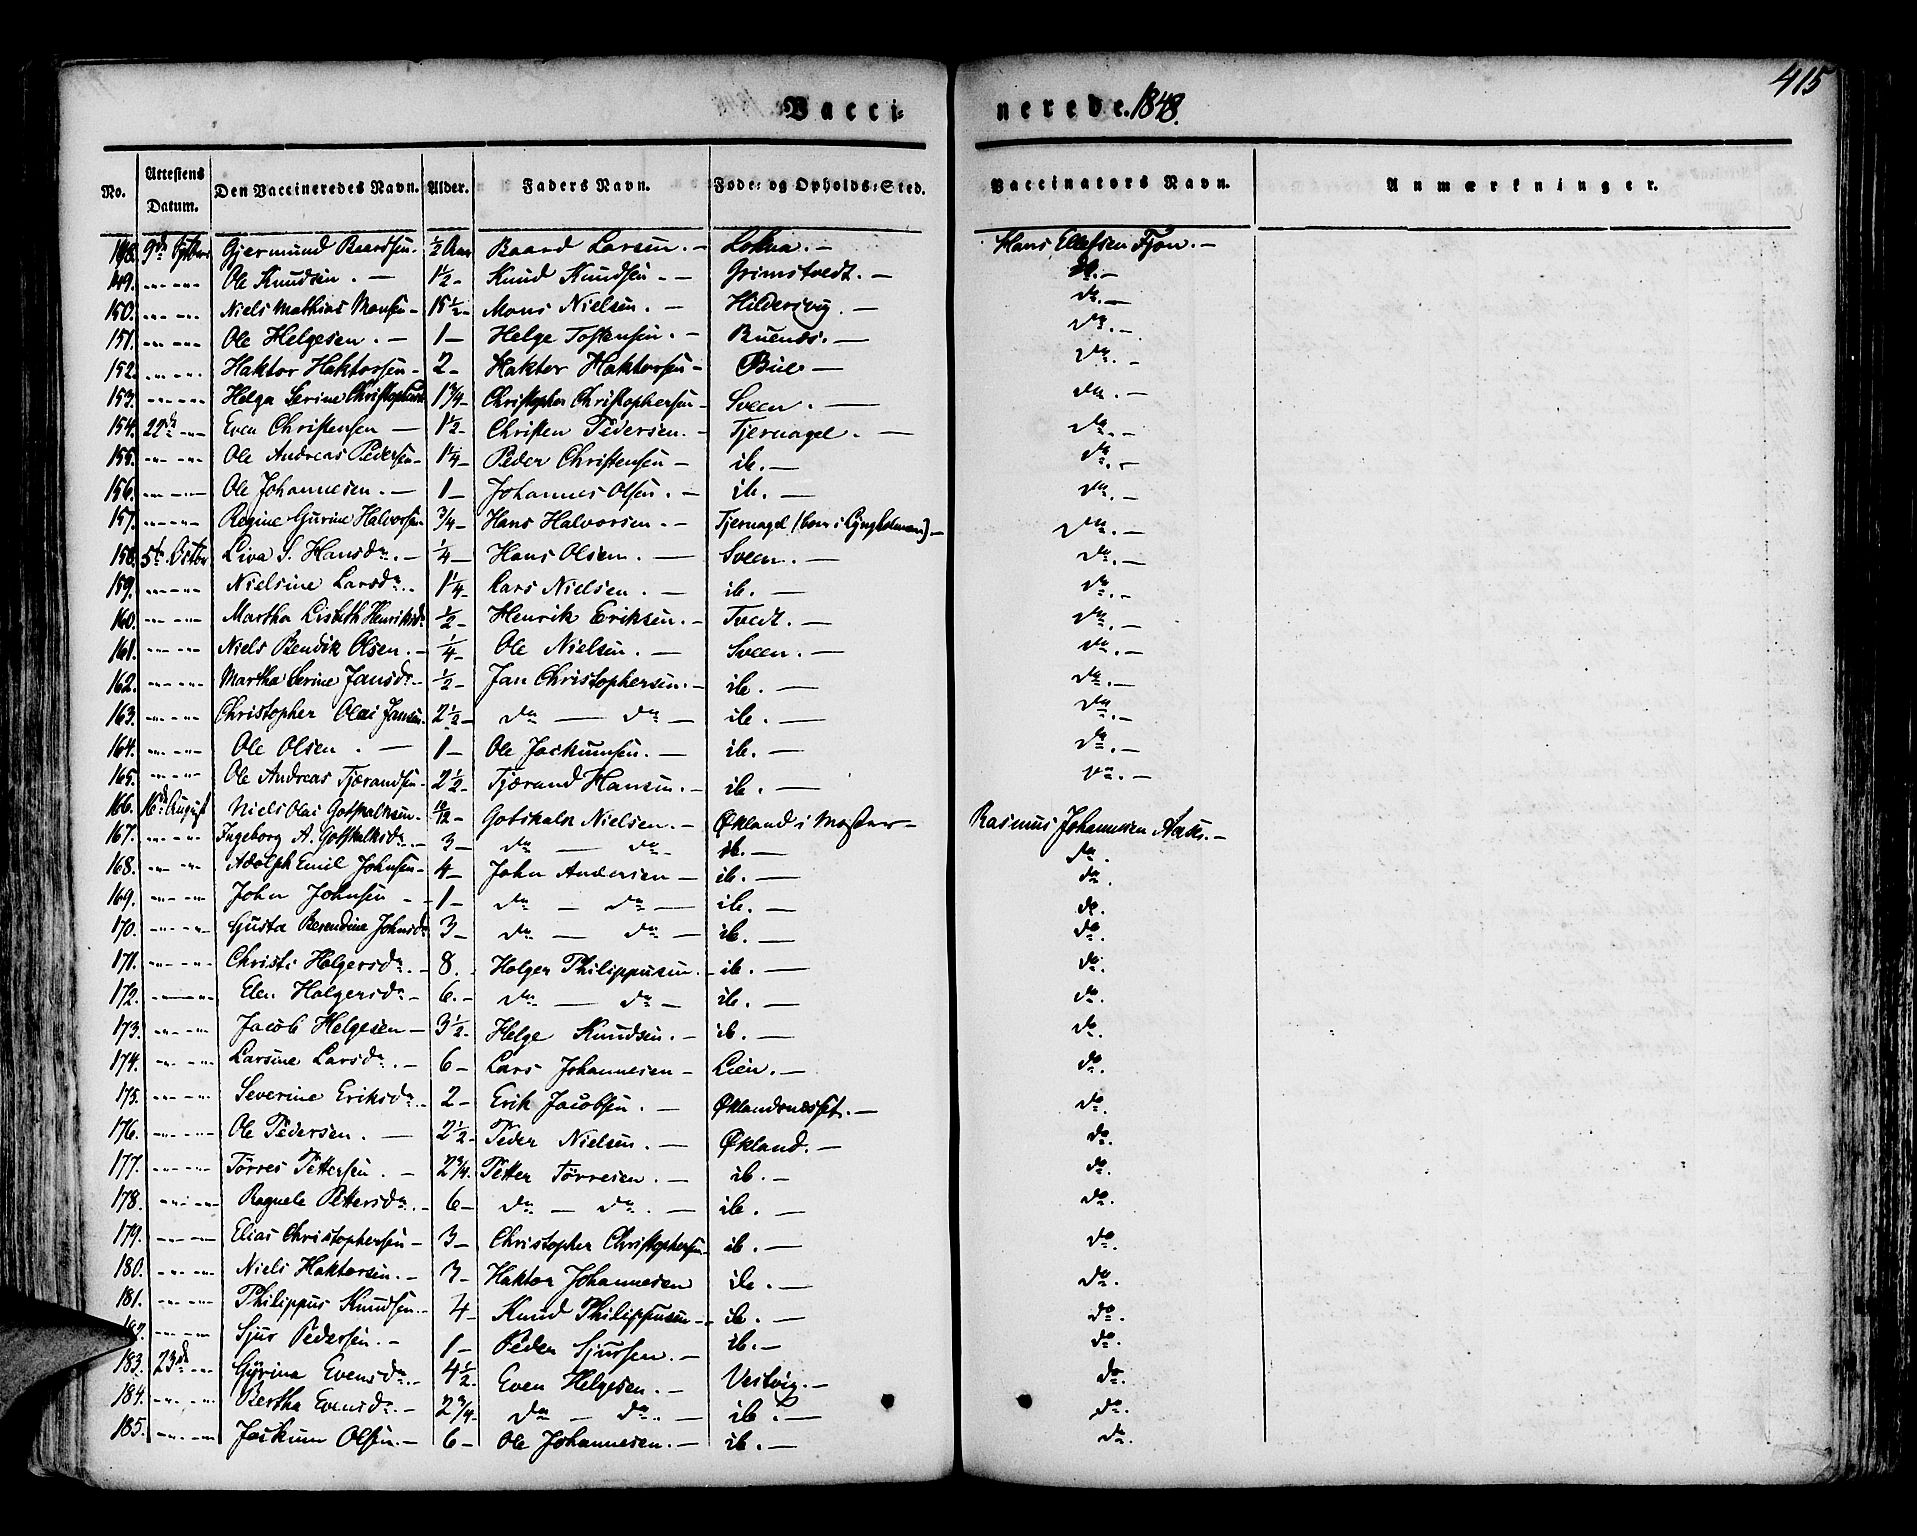 415
Vacci- nerede. 1848.
No. Attestens Datum. Den Vaccineredes Navn. Alder. Faders Navn. Føde- og Opholds-Sted. Vaccinators Navn. Anmærkninger.
148. 9de Gjermund Baardsen. ½ Aar Baard Larsen. — Hans Ellefsen Fjon. —
149. Ole Knudsen. — 1½ — Knud Knudsen — Grimstvedt. — ib. —
150. Niels Mathias Monsen — 15½ — Mons Nielsen. — Hildersvig. — do. —
151. Ole Helgesen. — 1 — Helge Tostensen. — Buenæs. — do. —
152. Haktor Haktorsen — 2 — Haktor Haktorsen — Bue — do. —
153. Helga Serine 1¾ — Christopher Christophersen — Sveen. — do. —
154. 22de Even Christensen — 1½ — Christen Pedersen. — Tjernagel. — do. —
155. Ole Andreas Pedersen — 1¼ — Peder Christensen — ib. — do. —
156. Ole Johannesen. — 1 — Johannes Olsen. — ib. — do. —
157. Regine Gurine Halvorsen ¾ — Hans Halvorsen. — Tjernagel do. —
158. 5te Octbr Liva S. Hansdr. — ¼ — Hans Olsen. — Sveen. — do. —
159. Nielsine Larsdr. 1¼ — Lars Nielsen. — ib. — do. —
160. Martha Lisbeth Henriksdr ½ — Henrik Eriksen. — Tvedt. — do. —
161. Niels Bendik Olsen. — ¼ — Ole Nielsen. — Sveen. — do. —
162. Martha Serine Jansdr. ½ — Jan Christophersen. — ib. — do. —
163. Christopher Olai Jansen. 2½ — do — do — ib. — do. —
164. Ole Olsen. — 1 — Ole Jackumsen. — ib. — do. —
165. Ole Andreas Tjerandsen — 2½ — Tjærand Hansen. — ib. — do. —
166. 16de August Niels Olai Gotskalksen. 10/12 — Gotskalk Nielsen. — Økland i Moster — Rasmus Johannesen —
167. Ingeborg A. Gotskalksdr. 3 — do — do. ib. — do.
168. Adolph Emil Johnsen — 4 — John Andersen — ib. — do.
169. John Johnsen — 1 — do — do — ib. — do.
170. Gusta Berendine Johnsdr 3 — do — do — ib. — do.
171. Christi Holgersdr. — 8. — Holger Philippusen. — ib. — do.
172. Elen Holgersdr — 6. — do — do — ib. — do.
173. Jacob Helgesen — 3½ — Helge Knudsen. — ib. — do.
174. Larsine Larsdr. — 6 — Lars Johannesen — Lien. — do.
175. Severine Eriksdr. 2 — Erik Jacobsen. — — do.
176. Ole Pedersen. — 2½ — Peder Nielsen. — Økland. — do.
177. Tørres Pettersen. — 2¾ — Petter Tørresen. — ib. — do.
178. Ragnele Pettersdr. 6 — do — do. — ib. — do.
179. Elias Christophersen — 3 — Christopher Christophersen — ib. — do.
180. Niels Haktorsen. — 3 — Haktor Johannesen ib. — do.
181. Philippus Knudsen. — 4 — Knud Philippusen — ib. — do.
182. Sjur Pedersen. — 1 — Peder Sjursen. — ib. — do.
183. 23de Gurina Evensdr. 4½ — Even Helgesen. — Vestvig. — do.
184. Bertha Evensdr. — 2¾ — do — do. — ib. — do.
185. Jackum Olsen. — 6 — Ole Johannesen. — ib. — do.